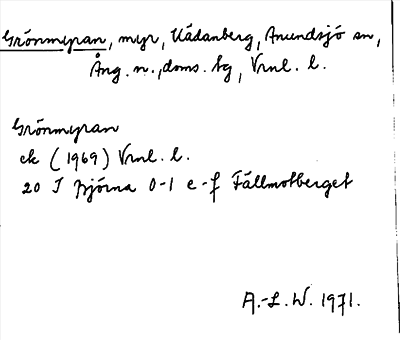 Grönmyran, myr, Uådanberg, Anundsjö sn,
Ång. n., doms. bg, Vrnl. l.
Grönmyran
ek (1969) Vrnl. l.
20 J Björna 0-1 e-f Fällmotberget
A.-L. W. 1971.